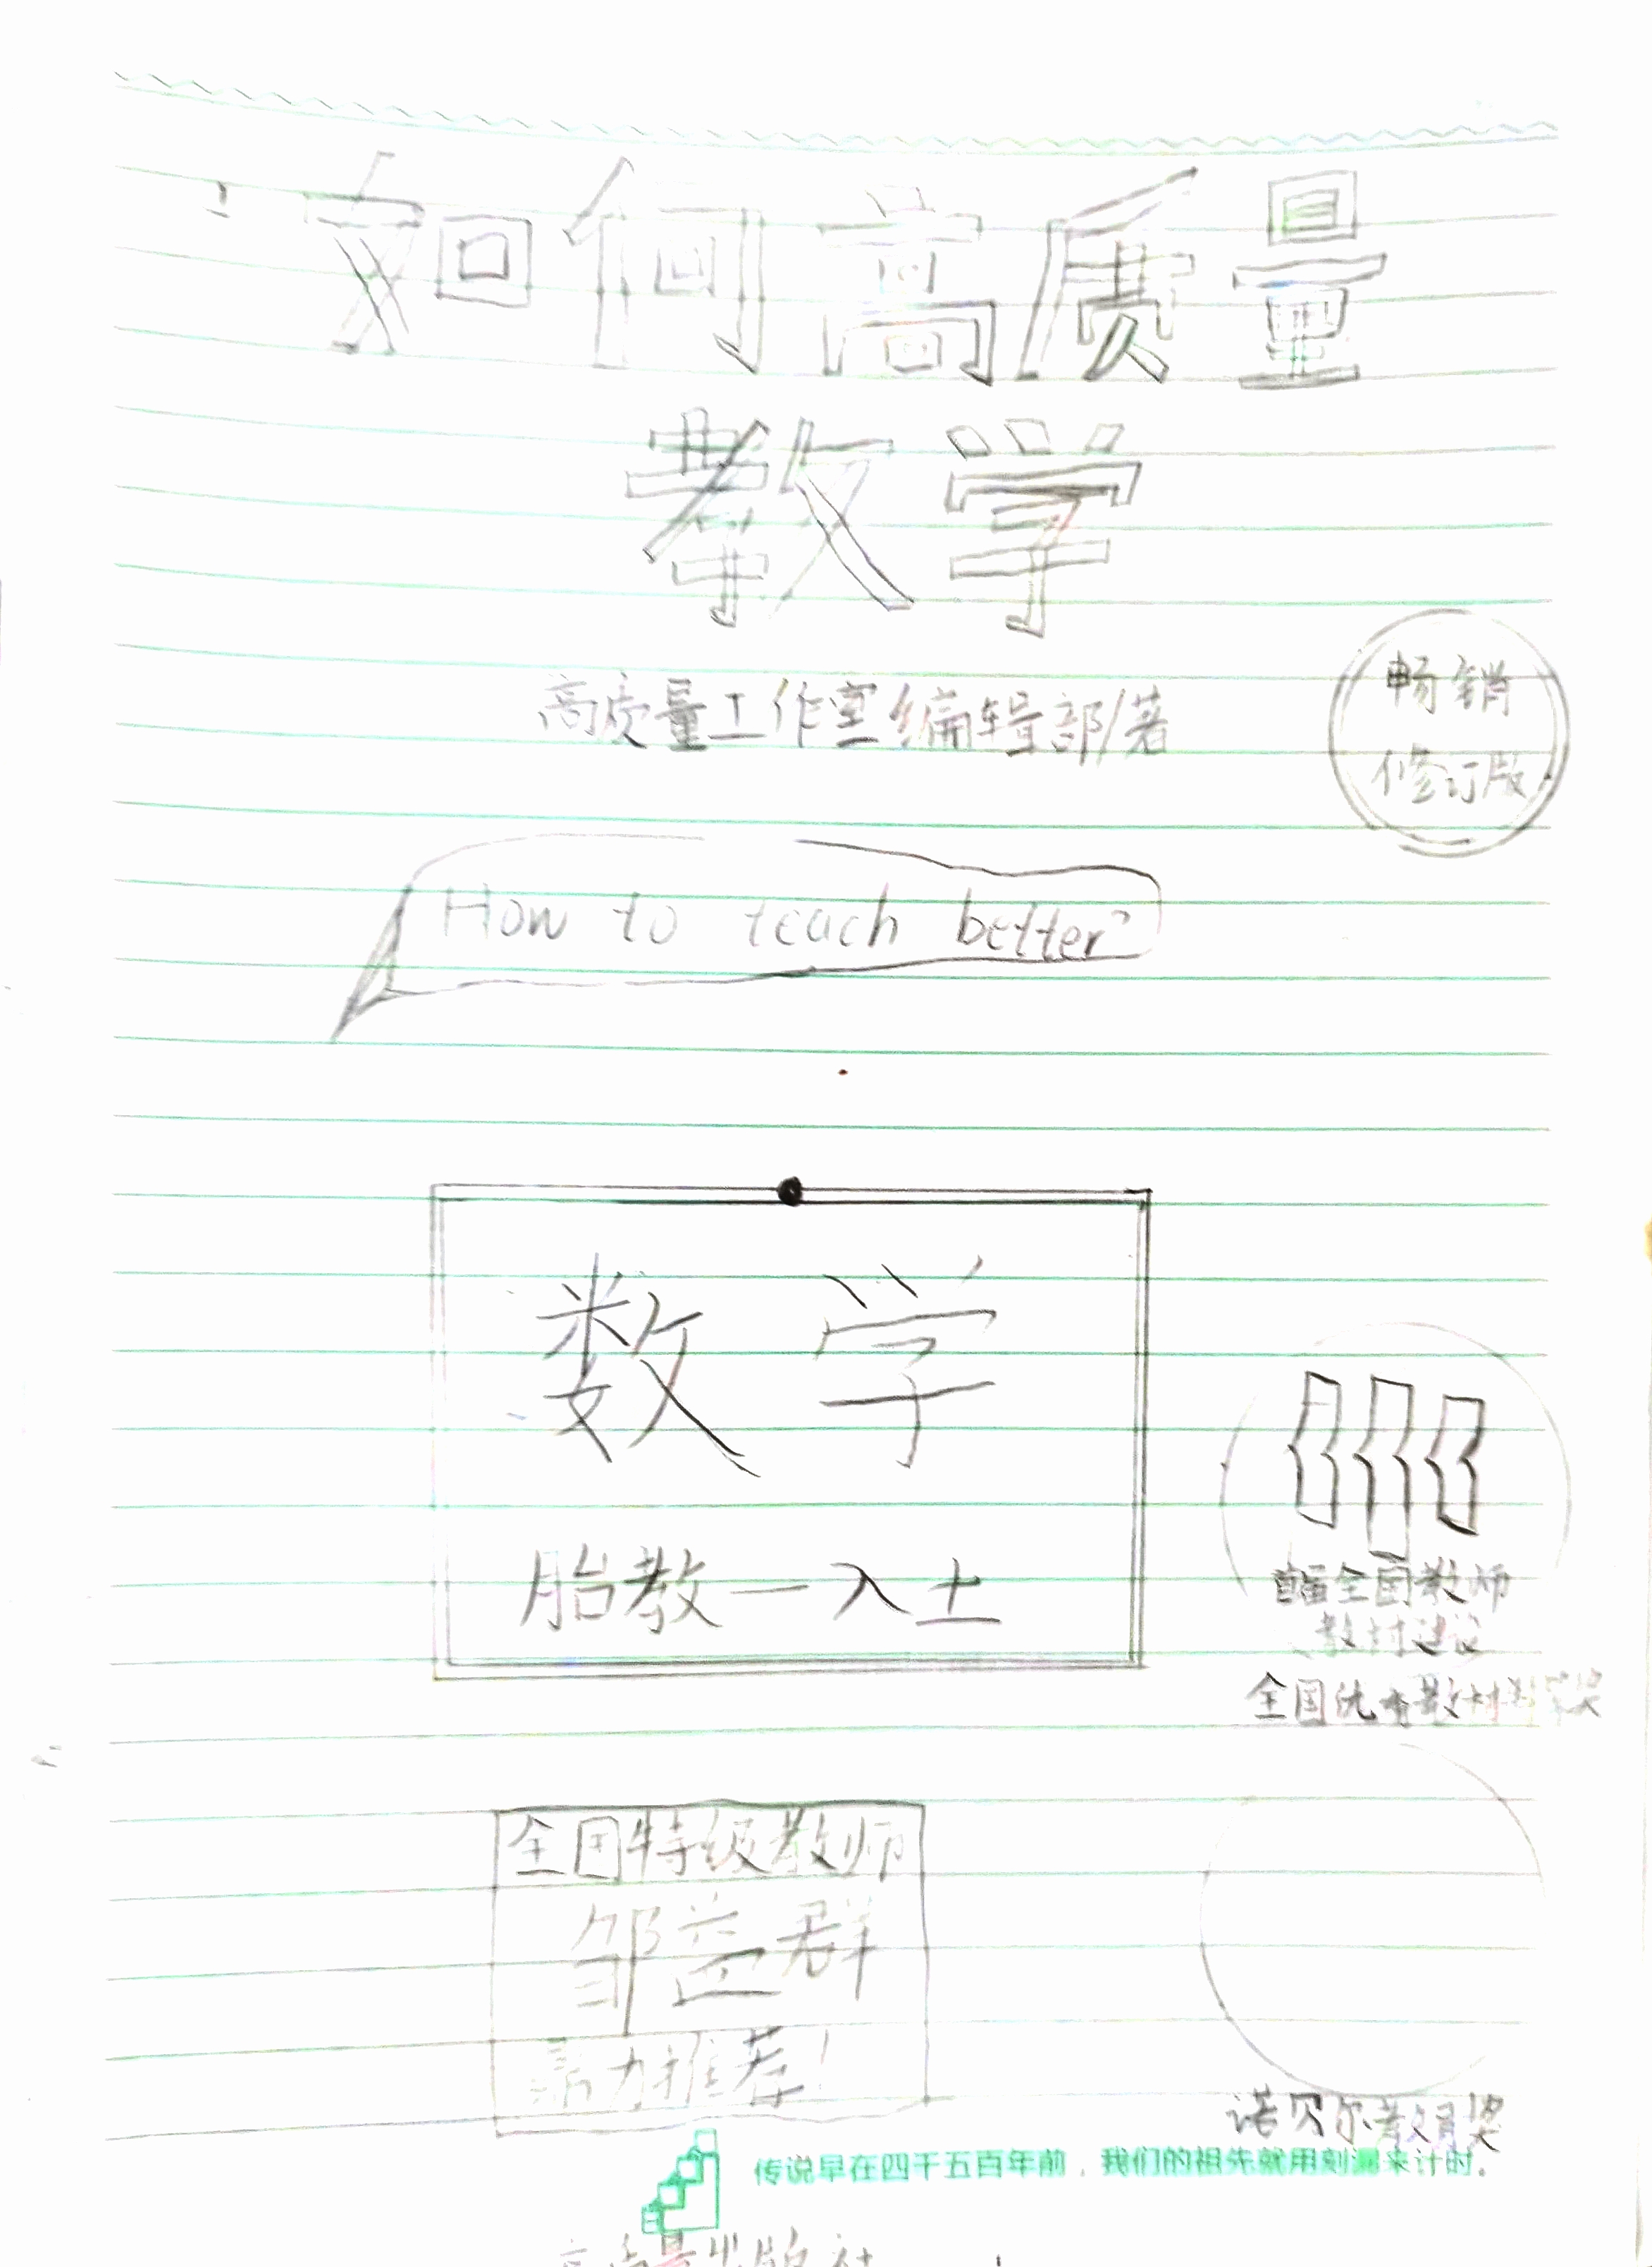 如何高质量
教学
高质量工作室编辑部/著
畅销
修订版
How to teach better?
数学
胎教—入土
首届全国教师
教材建设
全国优秀教材
全国特级教师
邹益群
力推荐!
诺贝尔教育奖
传说早在四千五百年前，我们的祖先就用刻漏来计时。
高质量出版社